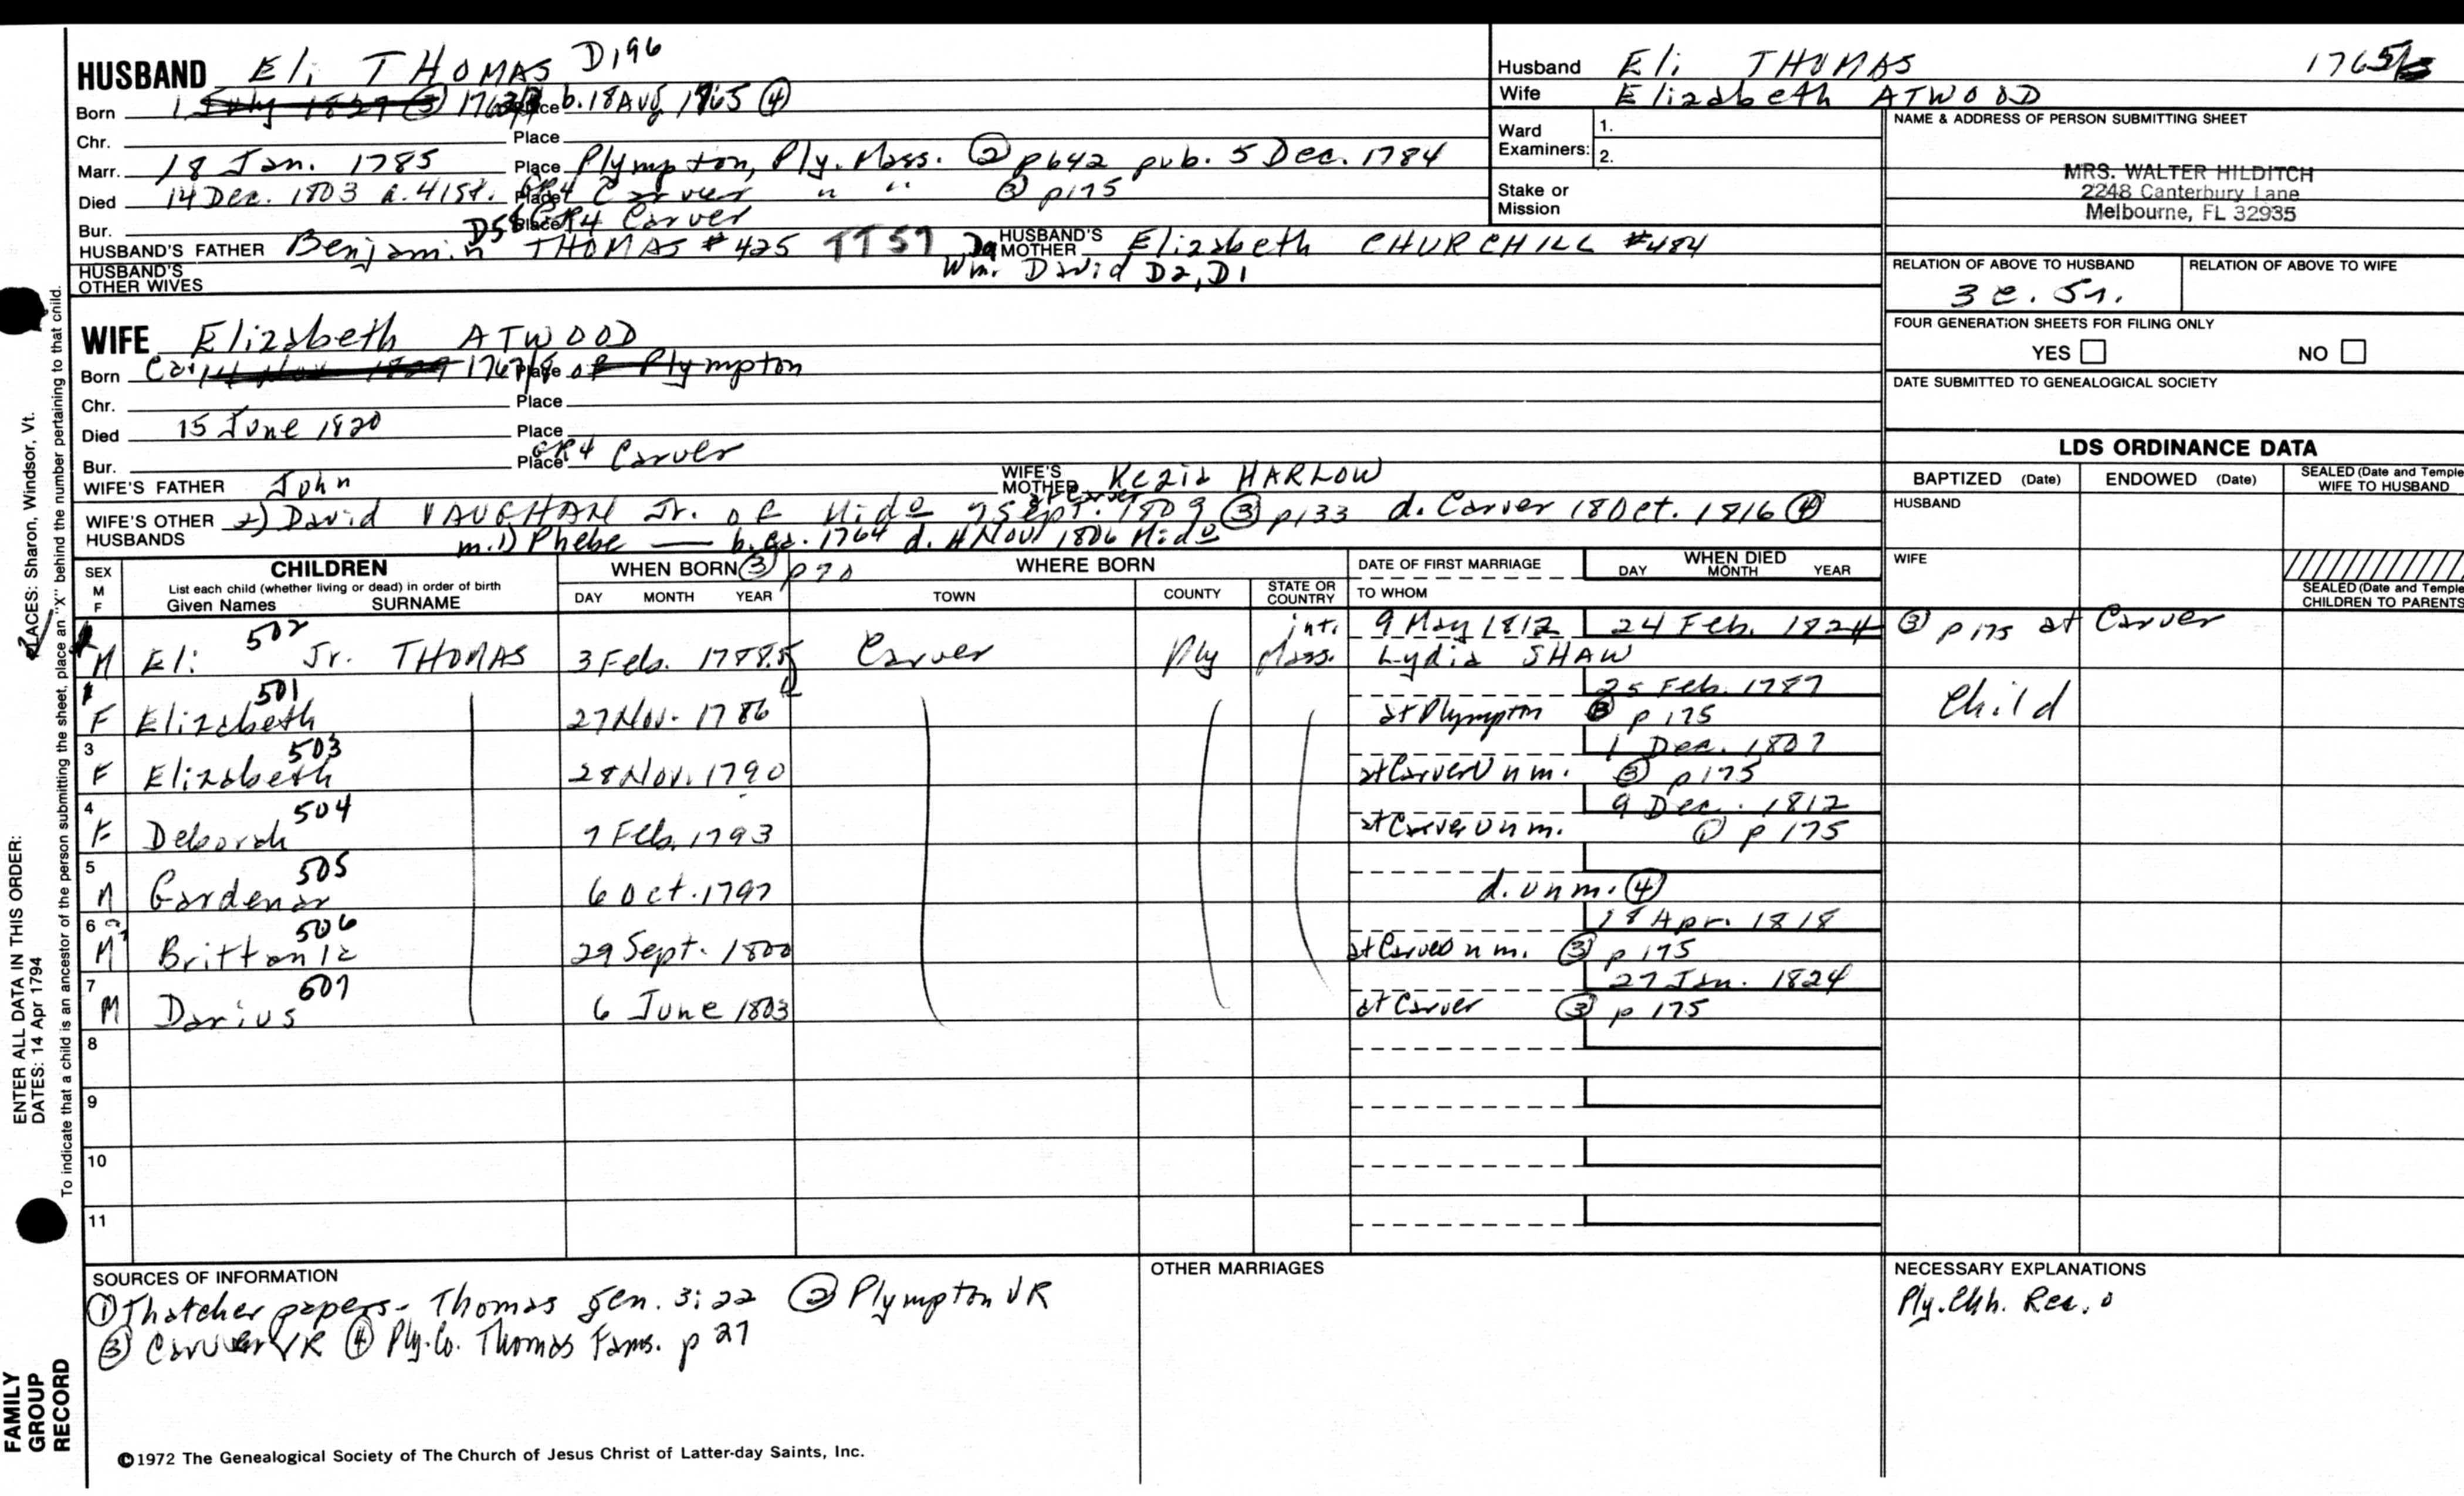 HUSBAND Eli THOMAS D196
Born 1 July 1827 (3) Place b. 18 Aug 1765 (4)
Chr. Place
Marr. 18 Jan. 1785 Place Plympton, Ply. Mass. (2) p642 pub. 5 Dec. 1784
Died 14 Dec. 1803 a. 41st. Place GR4 Carver " " (3) p175
Bur. Place GR4 Carver
HUSBAND'S FATHER Benjamin THOMAS #425 TT57 HUSBAND'S MOTHER Elizabeth CHURCHILL #484
D58 D9 Wm. David D2, D1
HUSBAND'S OTHER WIVES
WIFE Elizabeth ATWOOD
Born Ca. 14 Nov 1767/8 Place of Plympton
Chr. Place
Died 15 June 1820 Place
Bur. Place GR4 Carver
WIFE'S FATHER John WIFE'S MOTHER Kezia HARLOW
WIFE'S OTHER HUSBANDS 2) David VAUGHAN Jr. of Mido at Carver 7 Sept. 1809 (3) p133 d. Carver 18 Oct. 1816 (4)
m. 1) Phebe — b. ca. 1764 d. 4 Nov 1806 Mido
Husband Eli THOMAS 1765/
Wife Elizabeth ATWOOD
Ward Examiners: 1. 2.
Stake or Mission
NAME & ADDRESS OF PERSON SUBMITTING SHEET
MRS. WALTER HILDITCH
2248 Canterbury Lane
Melbourne, FL 32935
RELATION OF ABOVE TO HUSBAND RELATION OF ABOVE TO WIFE
3 c. 5r.
FOUR GENERATION SHEETS FOR FILING ONLY
YES NO
DATE SUBMITTED TO GENEALOGICAL SOCIETY
LDS ORDINANCE DATA
BAPTIZED (Date) ENDOWED (Date) SEALED (Date and Temple) WIFE TO HUSBAND
HUSBAND
WIFE
SEALED (Date and Temple) CHILDREN TO PARENTS
SEX M F CHILDREN List each child (whether living or dead) in order of birth Given Names SURNAME
WHEN BORN (3) p70 DAY MONTH YEAR WHERE BORN TOWN COUNTY STATE OR COUNTRY
DATE OF FIRST MARRIAGE TO WHOM WHEN DIED DAY MONTH YEAR
502 int. 9 May 1812 24 Feb. 1824 (3) p175 at Carver
M Eli Jr. THOMAS 3 Feb. 1785 Carver Ply Mass. Lydia SHAW
501 25 Feb. 1787 Child
F Elizabeth 27 Nov. 1786 at Plympton (3) p175
3 503 1 Dec. 1807
F Elizabeth 28 Nov. 1790 at Carver Unm. (3) p175
4 504 9 Dec. 1812
F Deborah 7 Feb. 1793 at Carver Unm. (1) p175
5 505
M Gardenar 6 Oct. 1797 d. unm. (4)
6 506 18 Apr. 1818
M Brittania 29 Sept. 1800 at Carver unm. (3) p175
7 607 27 Jan. 1824
M Darius 6 June 1803 at Carver (3) p175
8
9
10
11
SOURCES OF INFORMATION
(1) Thatcher papers - Thomas gen. 3:22 (2) Plympton VR
(3) Carver VR (4) Ply. Co. Thomas Fams. p 27
OTHER MARRIAGES
NECESSARY EXPLANATIONS
Ply. Chh. Rec.
©1972 The Genealogical Society of The Church of Jesus Christ of Latter-day Saints, Inc.
FAMILY GROUP RECORD
ENTER ALL DATA IN THIS ORDER:
DATES: 14 Apr 1794
PLACES: Sharon, Windsor, Vt.
To indicate that a child is an ancestor of the person submitting the sheet, place an "X" behind the number pertaining to that child.